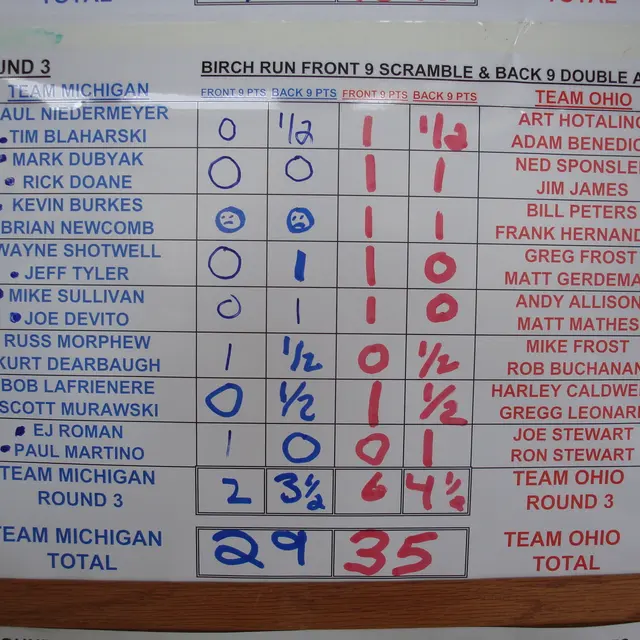 TOTAL TOTAL
UND 3 BIRCH RUN FRONT 9 SCRAMBLE & BACK 9 DOUBLE A
TEAM MICHIGAN FRONT 9 PTS BACK 9 PTS FRONT 9 PTS BACK 9 PTS TEAM OHIO
AUL NIEDERMEYER ART HOTALING
TIM BLAHARSKI 0 1/2 1 1/2 ADAM BENEDIC
MARK DUBYAK NED SPONSLE
RICK DOANE 0 0 1 1 JIM JAMES
KEVIN BURKES BILL PETERS
BRIAN NEWCOMB 1 1 FRANK HERNAND
WAYNE SHOTWELL GREG FROST
JEFF TYLER 0 1 1 0 MATT GERDEMA
MIKE SULLIVAN ANDY ALLISON
JOE DEVITO 0 1 1 0 MATT MATHES
RUSS MORPHEW MIKE FROST
KURT DEARBAUGH 1 1/2 0 1/2 ROB BUCHANAN
BOB LAFRIENERE HARLEY CALDWE
SCOTT MURAWSKI 0 1/2 1 1/2 GREGG LEONAR
EJ ROMAN JOE STEWART
PAUL MARTINO 1 0 0 1 RON STEWART
TEAM MICHIGAN TEAM OHIO
ROUND 3 2 3 1/2 6 4 1/2 ROUND 3
TEAM MICHIGAN TEAM OHIO
TOTAL 29 35 TOTAL